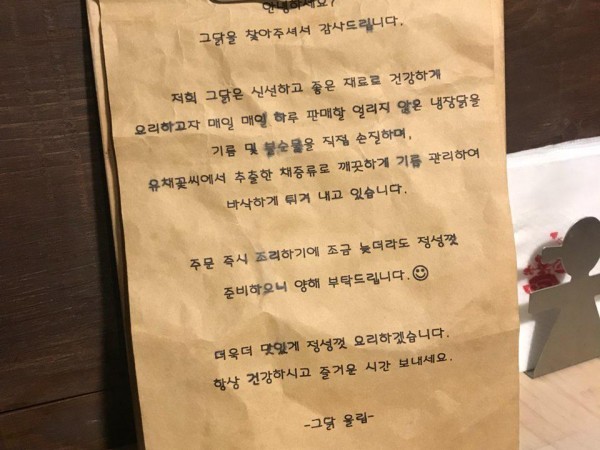 안녕하세요?
그닭을 찾아주셔서 감사드립니다.
저희 그닭은 신선하고 좋은 재료로 건강하게
요리하고자 매일 매일 하루 판매할 얼리지 않은 냉장닭을
기름 및 불순물을 직접 손질하며,
유채꽃씨에서 추출한 채종류로 깨끗하게 기름 관리하여
바삭하게 튀겨 내고 있습니다.
주문 즉시 조리하기에 조금 늦더라도 정성껏
준비하오니 양해 부탁드립니다.☺
더욱더 맛있게 정성껏 요리하겠습니다.
항상 건강하시고 즐거운 시간 보내세요.
-그닭 올림-